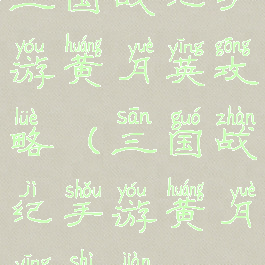 三国战纪手
yóu huáng yuè yīng gōng
游黄月英攻
lüè sān guó zhàn
略（三国战
jì shǒu yóu huáng yuè
纪手游黄月
yīng shì jiàn